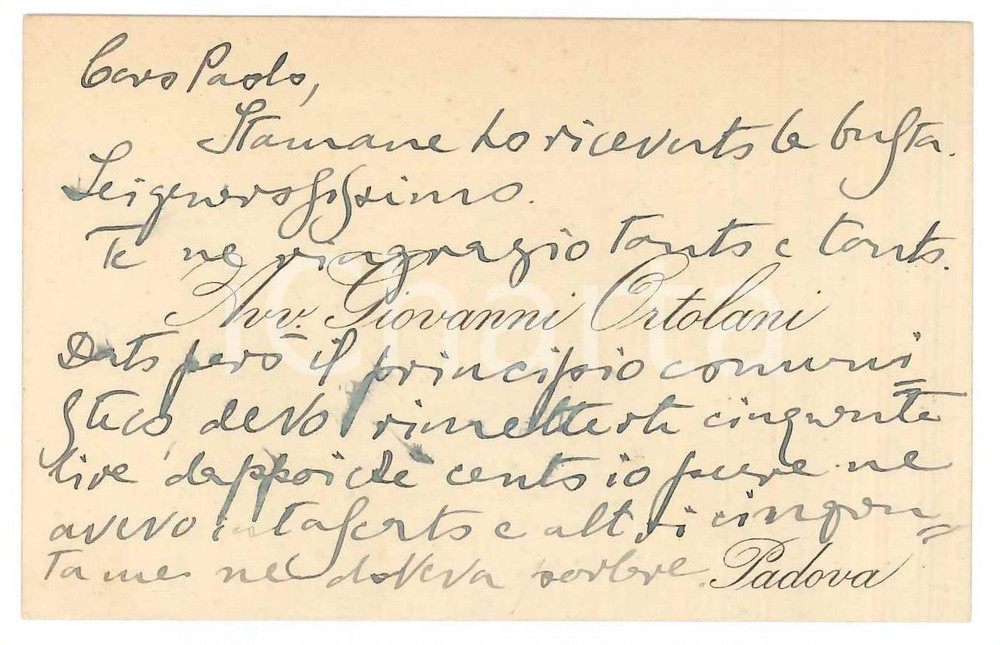 Caro Paolo,
Stamane ho ricevuto la busta.
Sei generosissimo.
Te ne ringrazio tanto e tanto.
Avv. Giovanni Ortolani
Dato però il principio comuni
stico, devo rimetterti cinquanta
lire, dappoiché cento io pure ne
avevo intascato e altri cinquan=
ta me ne doveva
Padova